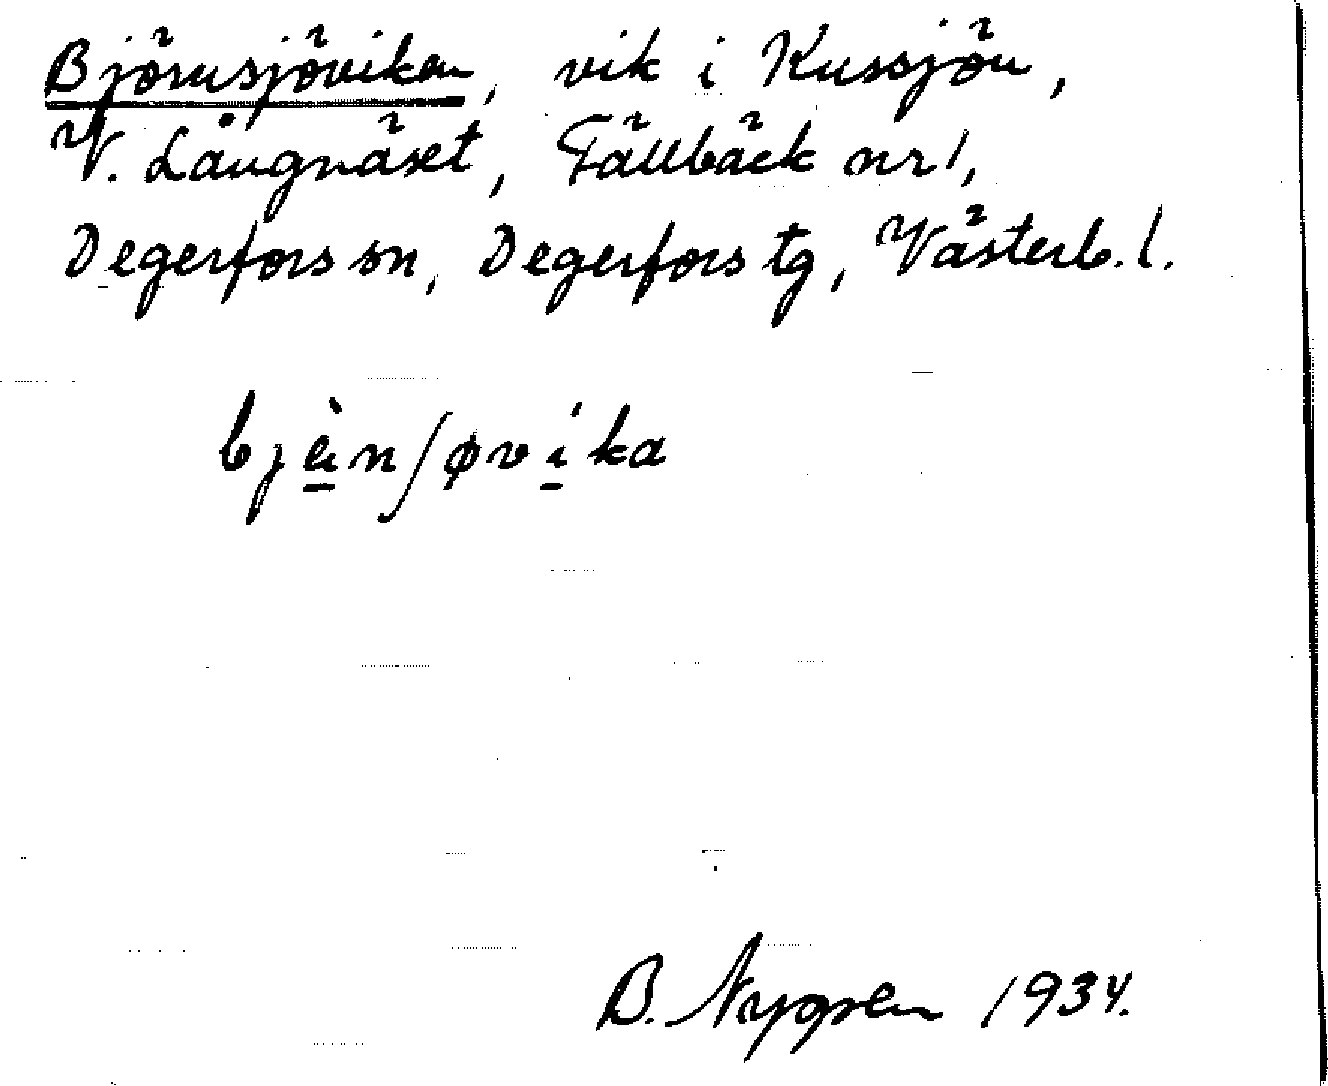 Björnsjöviken, vik i Kussjön,
V. Långnäset, Fällbäck nr 1,
Degerfors sn, Degerfors tg, Västerb. l.
ʃøvika
B. Nygren 1934.